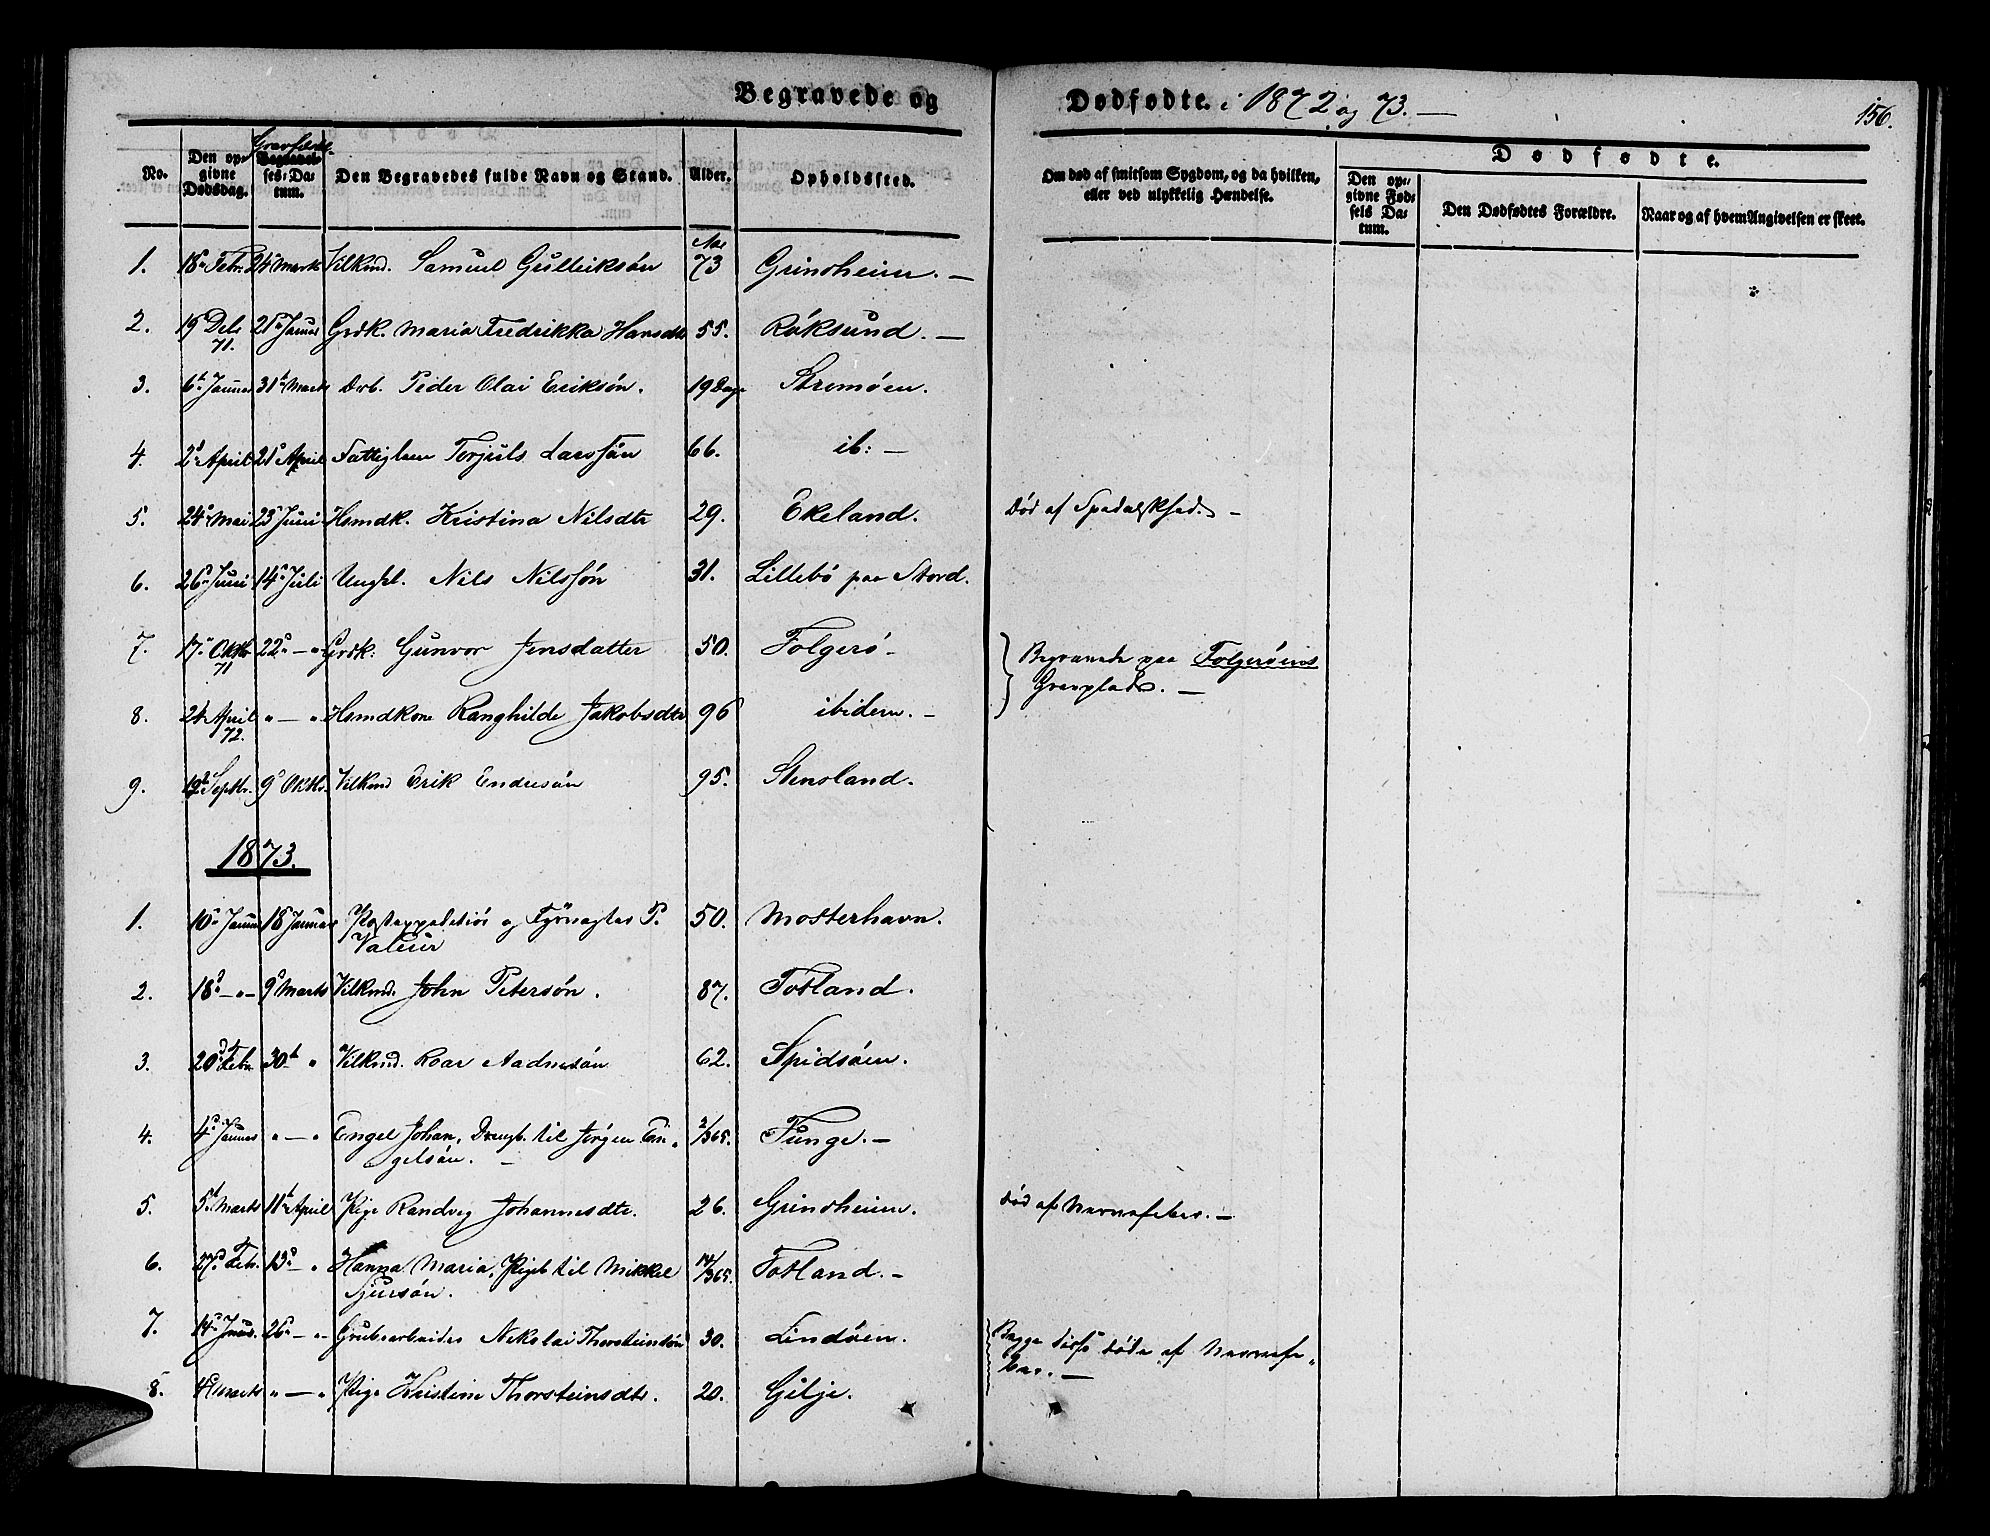 Begravede og Dødfødte. i 1872 og 73. —
156.
No.
Den opgivne Dødsdag.
Begravelses-Datum.
Den Begravedes fulde Navn og Stand.
Alder.
Opholdssted.
Om død af smitsom Sygdom, og da hvilken, eller ved ulykkelig Hændelse.
Dødfødte.
Den opgivne Fødsels Datum.
Den Dødfødtes Forældre.
Naar og af hvem Angivelsen er skeet.
1. 18 Febr. 24 Marts Vilkmd. Samuel Gulleiksøn 73 Grindheim. —
2. 19 Dcbr 71. 21 Januar Grdk. Maria Fredrikka Hansdtr 55. Røksund. —
3. 6t Januar 31t Marts Drb. Peder Olai Eriksøn. 19 Dage Stremøen.
4. 2 April 21 April Fattiglem Torjuls Larssøn 66. ib: —
5. 24 Mai 23 Juni Hsmdk. Kristina Nilsdtr 29. Ekeland. Død af Spedalskhed. —
6. 26 Juni 14 Juli Ungkl. Nils Nilssøn 31. Lillebø paa Stord.
7. 17 Oktbr 71 22 — " Grdk. Gunvor Jensdatter 50. Folgerø — Begravede paa Folgerøens
Gravplads. —
8. 24 April 72. " — " Hsmdkone Ranghilde Jakobsdtr 96 ibidem. —
9. 12 Septbr. 9 Oktbr. Vilkmd Erik Endresøn 95. Stensland.
1873.
1. 10 Januar 18 Januar Postexpeditør og Fyrvogter P.
Valeur 50. Mosterhavn.
2. 18 — " — 9 Marts Vilkmd. John Petersøn. 87. Totland.
3. 20 Febr 30t " Vilkmd. Roar Aadnesøn 62. Spidsøen.
4. 4 Januar " — " Engel Johan, Drengb. til Jørgen En-
gelsøn. — 2/365. Tunge. —
5. 5t Marts 11t April Pige Randveg Johannesdtr. 26. Grindheim. død af Nervefeber. —
6. 27 Febr. 13 — " Hanna Maria, Pigeb til Mikkel
Sjursøn. 14/365. Totland. —
7. 14 Janr. 26 — " Grubearbeider Nikolai Thorsteinsøn 30. Lindøen. Begge disse døde af Nervefe-
ber. —
8. 4 Marts " — " Pige Kristine Thorsteinsdtr. 20. Gilje.